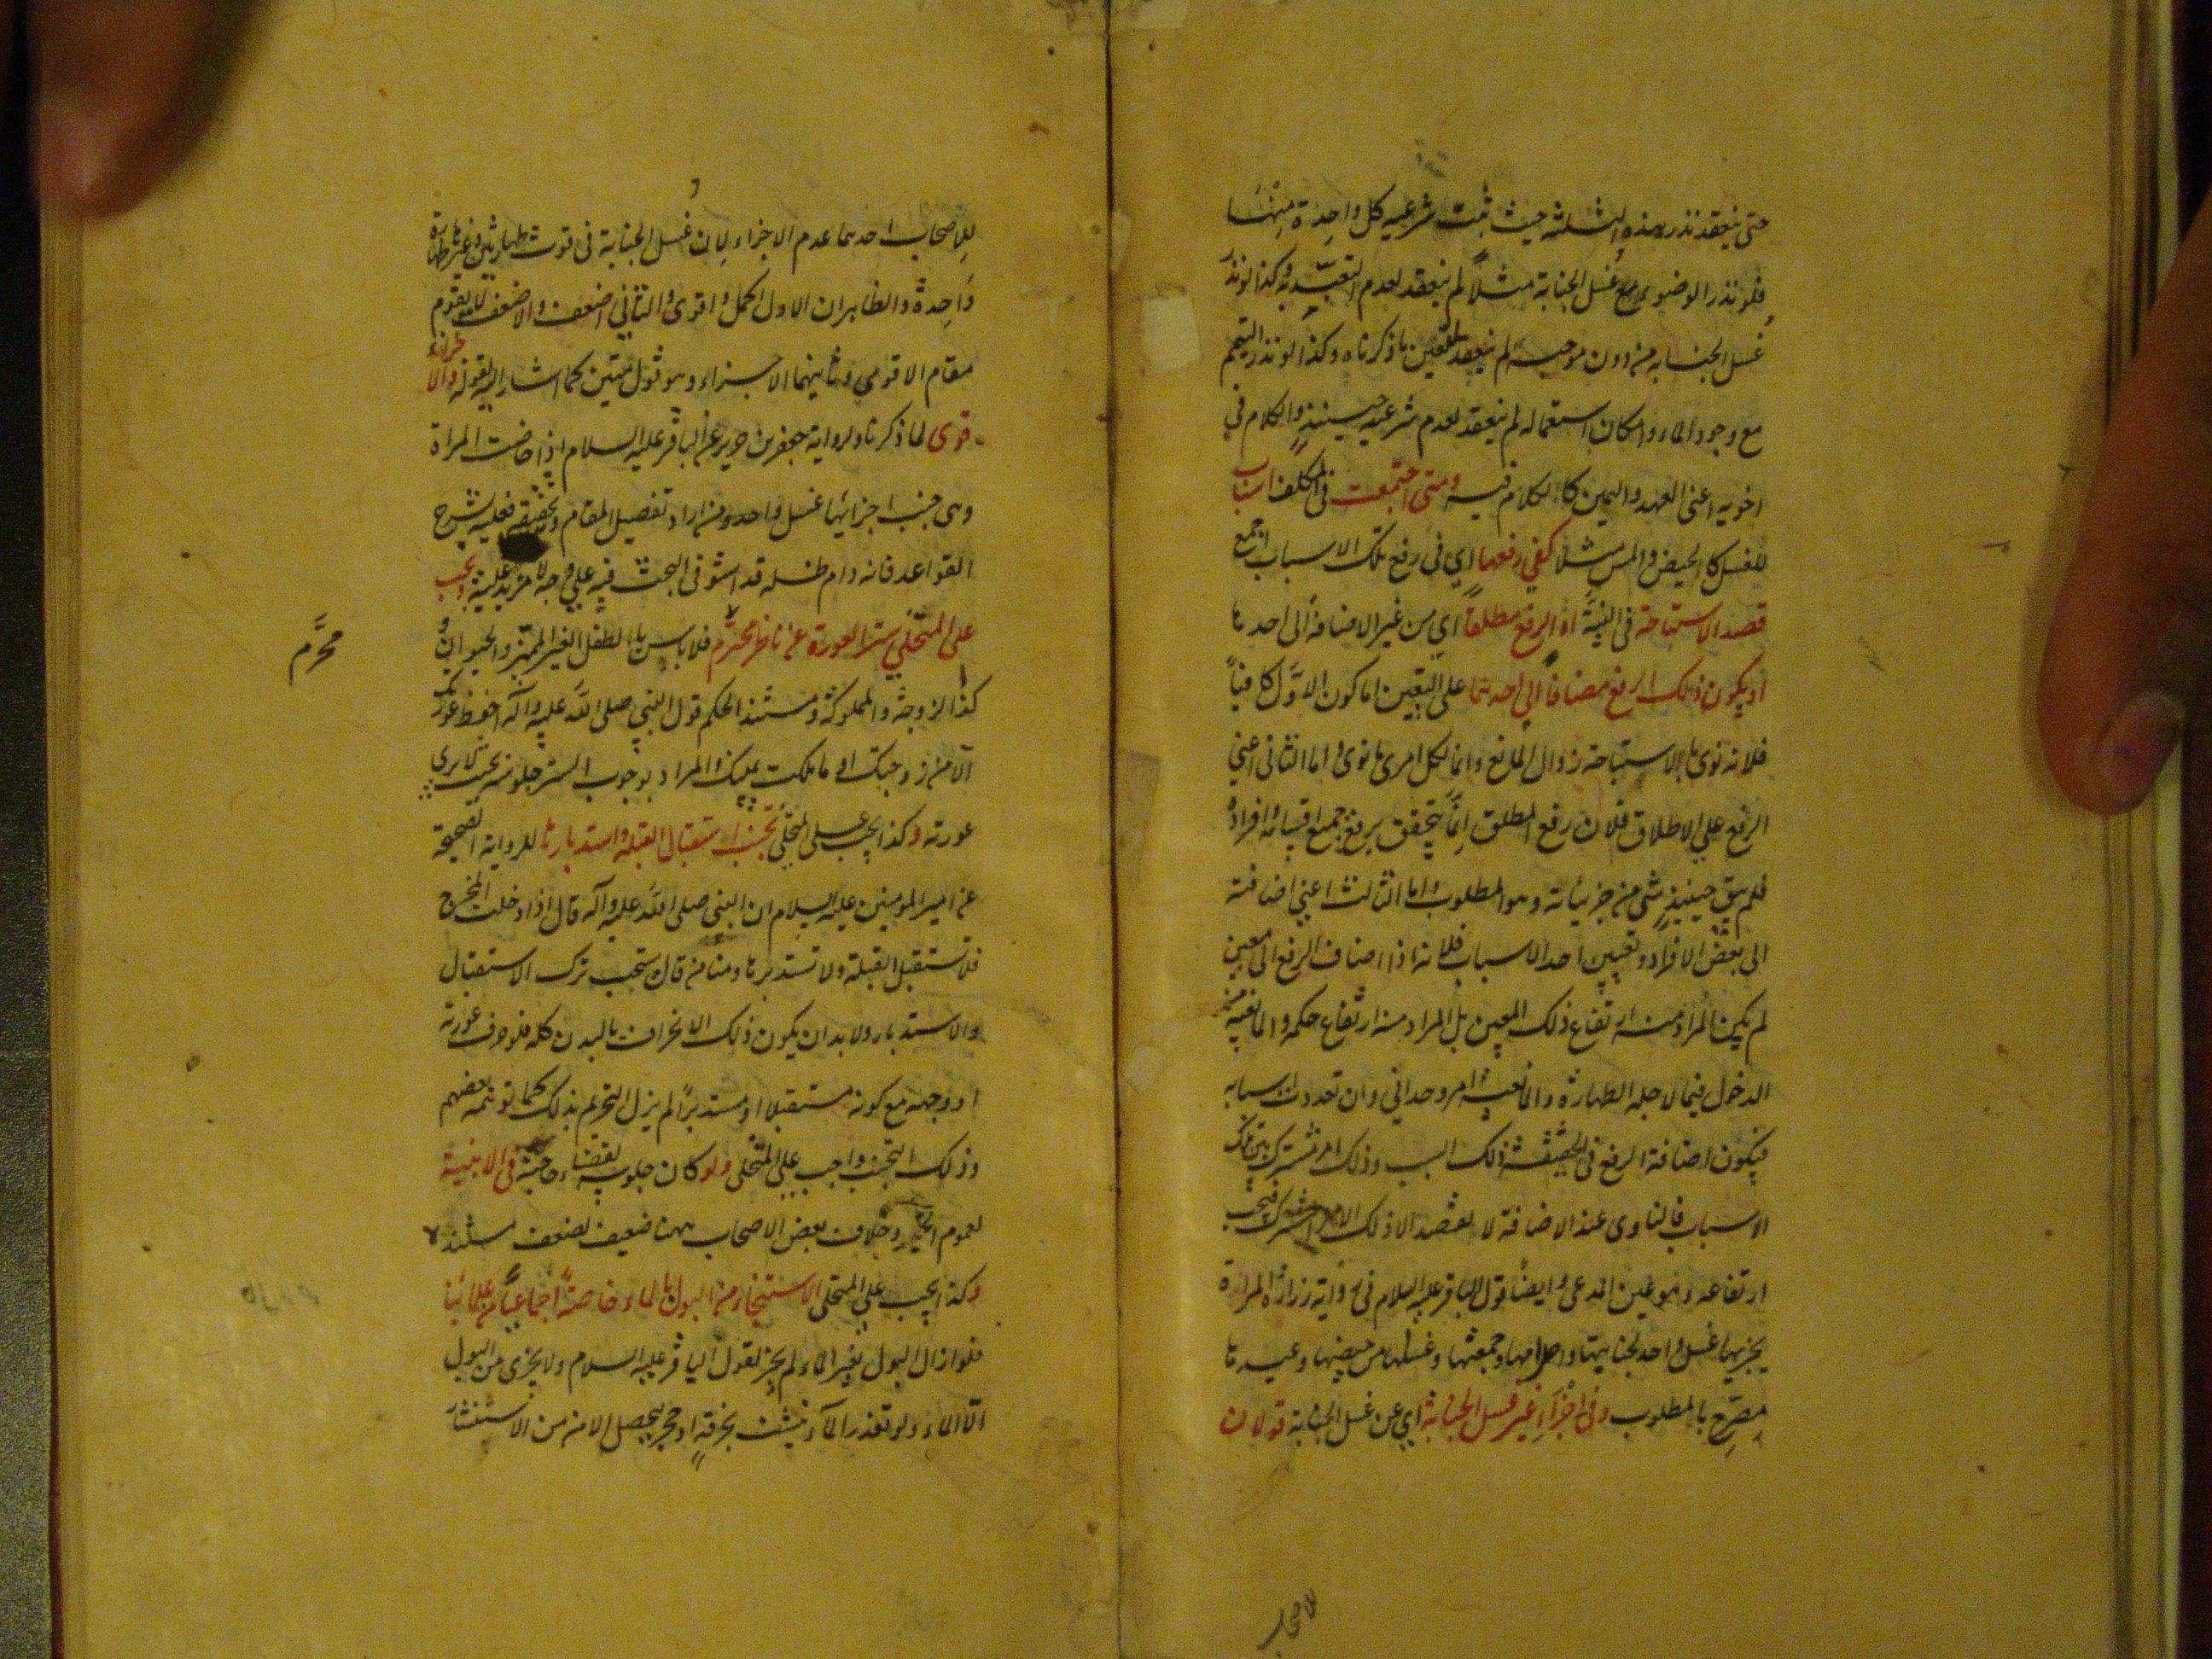 حتى ينعقد نذر هذه الثلثة حيث ثبت شرعيه كل واحدة منها
فلو نذر الوضوء مع غسل الجنابة مثلاً لم ينعقد لعدم التعبّد به وكذا لو نذر
غسل الجنابه من دون موجبه لم ينعقد لما ذكرناه وكذا لو نذر التيمم
مع وجود الماء وامكان استعماله لم ينعقد لعدم شرعيه حينئذٍ والكلام في
اخويه اعنى العهد واليمين كالكلام فيه ومتى اجتمعت فى المكلف اسباب
للغسل كالحيض والمس مثلا كفى رفعها اي فى رفع تلك الاسباب اجمع
قصد الاستباحة فى النية او الرفع مطلقاً اي من غير الاضافة الى احدها
او يكون ذلك الرفع مضافاً الى احدها على التعيين اما كون الاوّل كافياً
فلانه نوى بالاستباحة زوال المانع وانما لكل امرئ ما نوى واما الثانى اعني
الرفع على الاطلاق فلان رفع المطلق انمّا يتحقق برفع جميع اقسامه وافراده
فلم يبق حينئذٍ شى من جزئياته وهو المطلوب واما الثالث اعني اضافته
الى بعض الافراد وتعيين احد الاسباب فلانه اذا اضاف الرفع الى معين
لم يكن المراد منه ارتفاع ذلك المعين بل المراد منه ارتفاع حكمه والمانعية من
الدخول فيما لاجله الطهارة والمانعية امر وحدانى وان تعددت اسبابه
فيكون اضافة الرفع فى الحقيقة لذلك السبب وذلك امر مشترك بين تلك
الاسباب فالناوى عند الاضافة لا يقصد الا ذلك الامر المشترك فيجب
ارتفاعه وهو عين المدعى وايضا قول الباقر عليه السلام فى رواية زرارة المراة
يجزيها غسل واحد لجنابتها واحرامها وجمعتها وغسلها من حيضها وعيدها
مصرّح بالمطلوب وفى اجزاء غير غسل الجنابة اي عن غسل الجنابة قولان
للاصحاب
للاصحاب احدهما عدم الاجزاء لان غسل الجنابة فى قوت طهارتين وغيرها طهارة
واحدة والظاهر ان الاول اكمل واقوى والثاني اضعف والاضعف لا يقوم
مقام الاقوى وثانيهما الاجزاء وهو قول متين كما اشار اليه بقوله والاجزاء
قوى لما ذكرنا ولرواية جعفر بن حرير عن الباقر عليه السلام اذا حاضت المراة
وهى جنب اجزائها غسل واحد ومن اراد تفصيل المقام وتحقيقه فعليه بشرح
القواعد فانه دام ظله قد استوفى البحث فيه على وجه لا مزيد عليه ويجب
على المتخلي ستر العورة عن ناظر محترم فلا باس بالطفل الغير المميّز والحيوان و
محرَّم
كذا الزوجة والمملوكة ومستند الحكم قول النبي صلى الله عليه وآله احفظ عورتك
الا من زوجتك او ما ملكت يمينك والمراد بوجوب الستر جلوسه بحيث لا يرى
عورته وكذا يجب على المتخلّي تجنب استقبال القبلة واستدبارها للرواية الصحيحة
عن امير المؤمنين عليه السلام ان النبي صلى الله عليه وآله قال اذا دخلت المخرج
فلا تستقبل القبلة ولا تستدبرها ومنا من قال يستحب ترك الاستقبال
والاستدبار ولا بد ان يكون ذلك الانحراف بالبدن كله فلو حرف عورته
او وجهه مع كونه مستقبلا او مستدبرا لم يزل التحريم بذلك كما توهمه بعضهم
وذلك التجنب واجب على المتخلى ولو كان جلوسه لقضاء حاجته فى الابنية
لعموم الخبر وخلاف بعض الاصحاب هنا ضعيف لضعف مستنده
وكذا يجب على المتخلى الاستنجاء من البول بالماء خاصة اجماعا من علمائنا
فلو ازال البول بغير الماء لم يجز لقول الباقر عليه السلام ولا يجزى من البول
الا الماء ولو تعذر الماء نيشف بخرقةٍ او حجر ليحصل الامن من الاستنشار